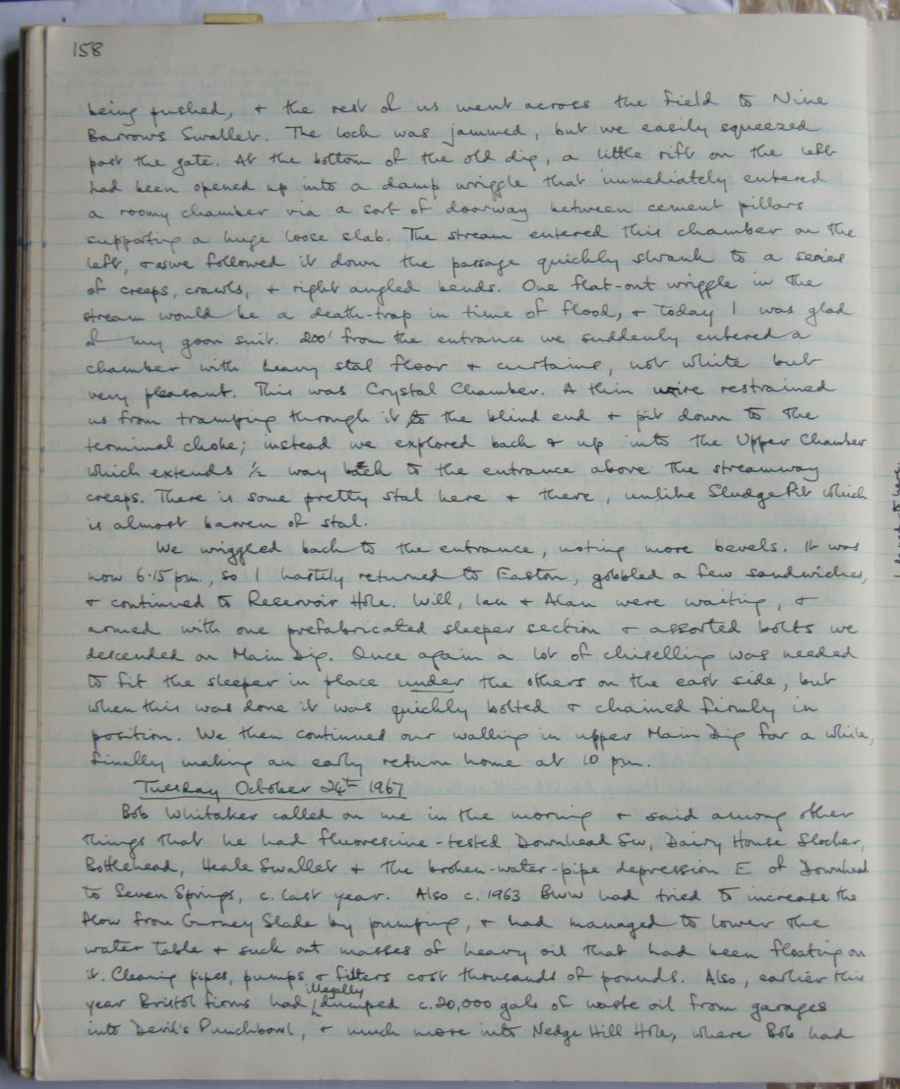 158
being pushed, + the rest of us went across the field to Nine
Barrows Swallet. The lock was jammed, but we easily squeezed
past the gate. At the bottom of the old dig, a little rift on the left
had been opened up into a damp wriggle that immediately entered
a roomy chamber via a sort of doorway between cement pillars
supporting a huge loose slab. The stream entered this chamber on the
left, + as we followed it down the passage quickly shrank to a series
of creeps, crawls, + right angled bends. One flat-out wriggle in the
stream would be a death-trap in time of flood, + today I was glad
of my goon suit. 200' from the entrance we suddenly entered a
chamber with heavy stal floor + curtains, not white but
very pleasant. This was Crystal Chamber. A thin wire restrained
us from tramping through it to the blind end + pit down to the
terminal choke; instead we explored back + up into the Upper Chamber
which extends ½ way back to the entrance above the streamway
creeps. There is some pretty stal here + there, unlike Sludge Pit which
is almost barren of stal.
We wriggled back to the entrance, noting more bevels. It was
now 6.15 pm., so I hastily returned to Easton, gobbled a few sandwiches,
+ continued to Reservoir Hole. Will, Ian + Alan were waiting, +
armed with one prefabricated sleeper section + assorted bolts we
descended on Main Dig. Once again a lot of chiselling was needed
to fit the sleeper in place under the others on the east side, but
when this was done it was quickly bolted + chained firmly in
position. We then continued our walling in upper Main Dig for a while,
finally making an early return home at 10 pm.
Tuesday October 24th 1967
Bob Whitaker called on me in the morning + said among other
things that he had fluorescine-tested Downhead Sw, Dairy House Slocker,
Bottlehead, Heale Swallet + the broken-water-pipe depression E of Downhead
to Seven Springs, c. last year. Also c. 1963 BWW had tried to increase the
flow from Gurney Slade by pumping, + had managed to lower the
water table + suck out masses of heavy oil that had been floating on
it. Cleaning pipes, pumps + filters cost thousands of pounds. Also, earlier this
year Bristol firms had illegally dumped c. 20,000 gals of waste oil from garages
into Devil's Punchbowl, + much more into Nedge Hill Hole, where Bob had